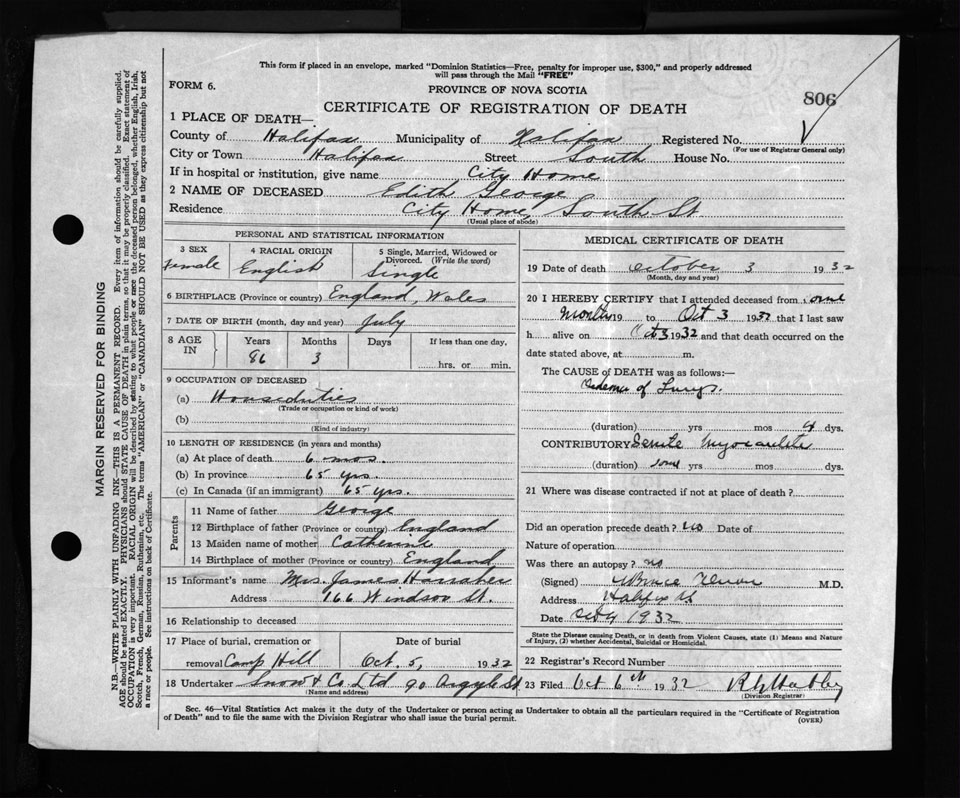 This form if placed in an envelope, marked "Dominion Statistics—Free, penalty for improper use, $300," and properly addressed
will pass through the Mail "FREE"
FORM 6.
PROVINCE OF NOVA SCOTIA
806
CERTIFICATE OF REGISTRATION OF DEATH
1 PLACE OF DEATH—
County of Halifax Municipality of Halifax Registered No.
(For use of Registrar General only)
City or Town Halifax Street South House No.
If in hospital or institution, give name City Home
2 NAME OF DECEASED Edith George
Residence City Home, South St
(Usual place of abode)
PERSONAL AND STATISTICAL INFORMATION
3 SEX Female
4 RACIAL ORIGIN English
5 Single, Married, Widowed or Divorced. (Write the word) Single
6 BIRTHPLACE (Province or country) England, Wales
7 DATE OF BIRTH (month, day and year) July
8 AGE IN Years 86 Months 3 Days If less than one day, hrs. or min.
9 OCCUPATION OF DECEASED
(a) Houseduties
(Trade or occupation or kind of work)
(b)
(Kind of industry)
10 LENGTH OF RESIDENCE (in years and months)
(a) At place of death 6 mos.
(b) In province 65 yrs.
(c) In Canada (if an immigrant) 65 yrs.
Parents
11 Name of father George
12 Birthplace of father (Province or country) England
13 Maiden name of mother Catherine
14 Birthplace of mother (Province or country) England
15 Informant's name Mrs. James
Address 166 Windsor St.
16 Relationship to deceased
17 Place of burial, cremation or removal Camp Hill
Date of burial Oct. 5, 1932
18 Undertaker Snow & Co. Ltd 90 Argyle St
(Name and address)
MEDICAL CERTIFICATE OF DEATH
19 Date of death October 3 1932
(Month, day and year)
20 I HEREBY CERTIFY that I attended deceased from one
month 19 to Oct 3 1932 that I last saw
h alive on Oct 3 1932 and that death occurred on the
date stated above, at m.
The CAUSE OF DEATH was as follows:—
Oedema of Lungs.
(duration) yrs mos 4 dys.
CONTRIBUTORY Senile Myocarditis
(duration) yrs mos dys.
21 Where was disease contracted if not at place of death?
Did an operation precede death? no Date of
Nature of operation
Was there an autopsy? no
(Signed) M.D.
Address Halifax
Date Oct 4 1932
State the Disease causing Death, or in death from Violent Causes, state (1) Means and Nature
of Injury, (2) whether Accidental, Suicidal or Homicidal.
22 Registrar's Record Number
23 Filed Oct 6th 1932
(Division Registrar)
Sec. 46—Vital Statistics Act makes it the duty of the Undertaker or person acting as Undertaker to obtain all the particulars required in the "Certificate of Registration
of Death" and to file the same with the Division Registrar who shall issue the burial permit.
(OVER)
MARGIN RESERVED FOR BINDING
N.B.—WRITE PLAINLY WITH UNFADING INK—THIS IS A PERMANENT RECORD. Every item of information should be carefully supplied.
AGE should be stated EXACTLY. PHYSICIANS should STATE CAUSE OF DEATH in plain terms, so that it may be properly classified. Exact statement of
OCCUPATION is very important. RACIAL ORIGIN will be described by stating to what people or race the deceased person belonged, whether English, Irish,
Scotch, French, German, Russian, Ruthenian, etc. The terms "AMERICAN" or "CANADIAN" SHOULD NOT BE USED as they express citizenship but not
a race or people. See instructions on back of Certificate.